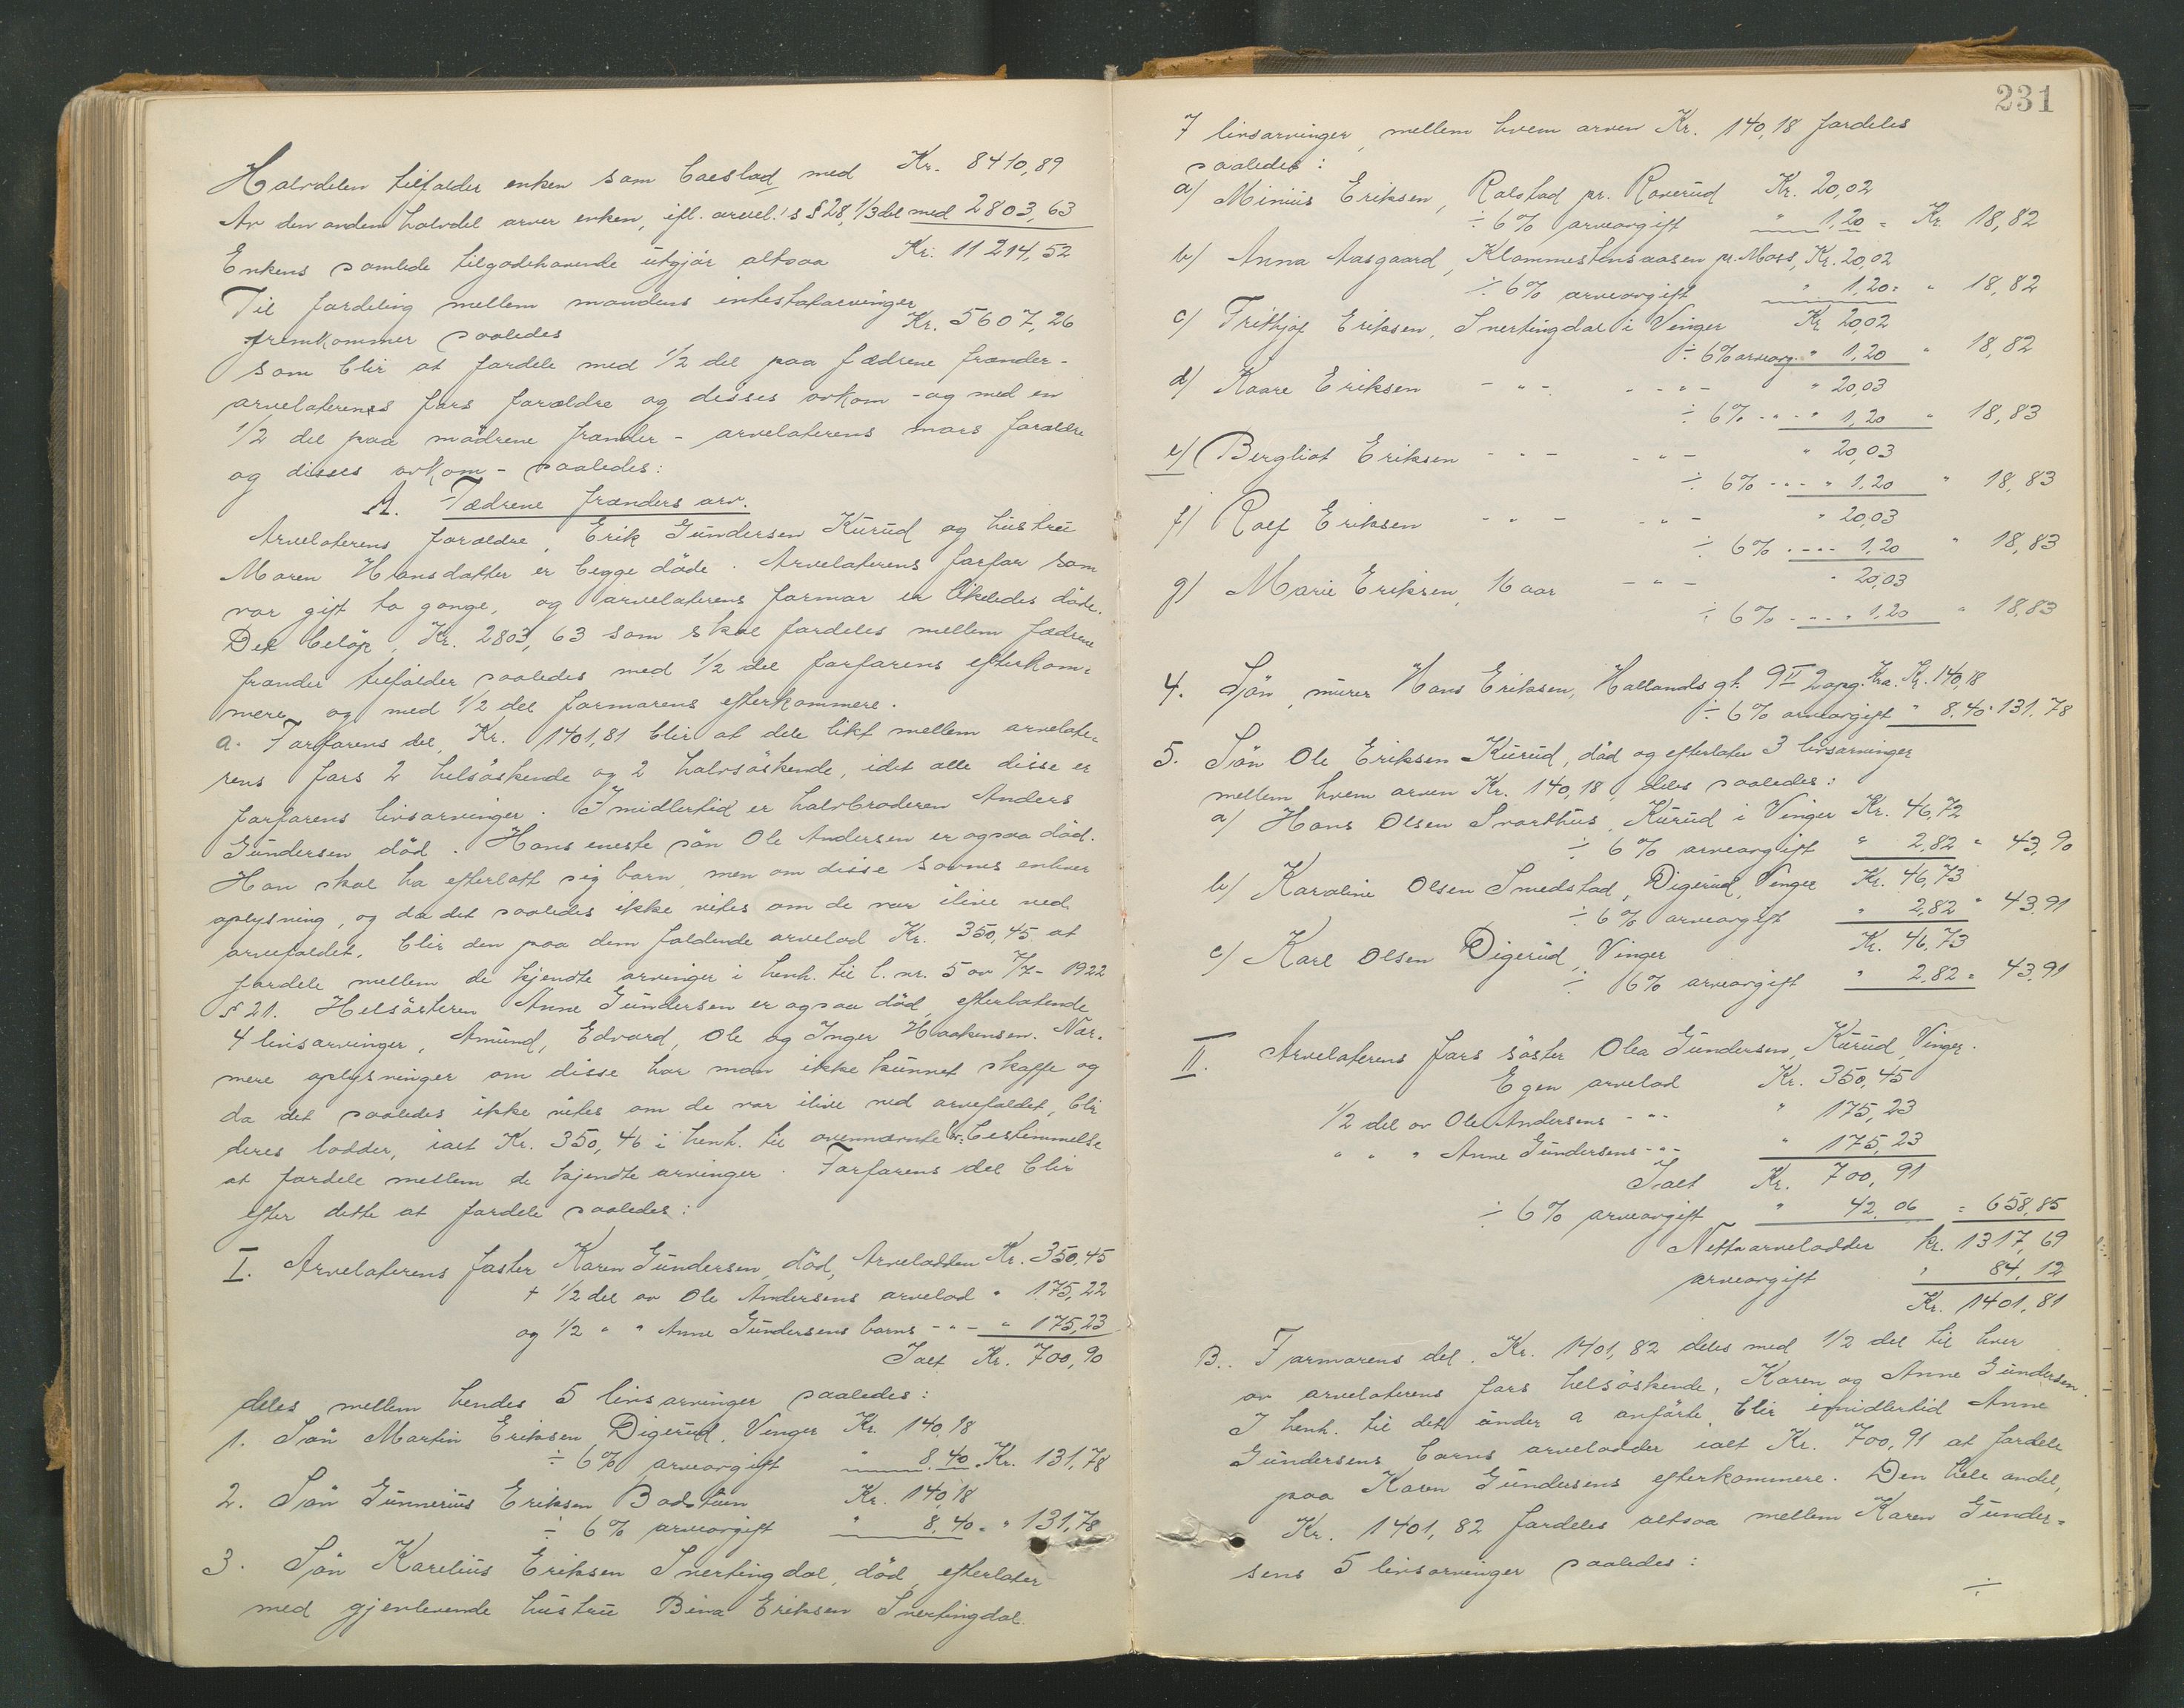 Halvdelen tilfalder enken som boeslod med Kr. 8410,89
Av den anden halvdel arver enken, ifl. arvel.'s § 28, 1/3 del med 2803,63
Enkens samlede tilgodehavende utgjör altsaa Kr. 11214,52
Til fordeling mellem mandens intestatarvinger
fremkommer saaledes Kr. 5607,26
som blir at fordele med 1/2 del paa fædrene frænder -
arvelaterens fars forældre og disses avkom - og med en
1/2 del paa mödrene frænder - arvelaterens mors forældre
og disses avkom - saaledes:
A. Fædrene frænders arv.
Arvelaterens forældre, Erik Gundersen Kurud og hustru
Maren Hansdatter er begge döde. Arvelaterens farfar som
var gift to gange, og arvelaterens farmor er likeledes döde.
Det belöp, Kr. 2803,63 som skal fordeles mellem fædrene
frænder tilfalder saaledes med 1/2 del farfarens efterkom-
mere og med 1/2 del farmorens efterkommere.
a. Farfarens del, Kr. 1401,81 blir at dele likt mellem arvelate-
rens fars 2 helsöskende og 2 halvsöskende, idet alle disse er
farfarens livsarvinger. Imidlertid er halvbroderen Anders
Gundersen död. Hans eneste sön Ole Andersen er ogsaa död.
Han skal ha efterlatt sig barn, men om disse savnes enhver
oplysning, og da det saaledes ikke vites om de var ilive ved
arvefaldet, blir den paa dem faldende arvelod Kr. 350,45 at
fordele mellem de kjendte arvinger i henh. til l. nr. 5 av 7/7- 1922
§ 21. Helsösteren Anne Gundersen er ogsaa död, efterlatende
4 livsarvinger, Amund, Edvard, Ole og Inger Haakensen. Nær-
mere oplysninger om disse har man ikke kunnet skaffe og
da det saaledes ikke vites om de var ilive ved arvefaldet, blir
deres lodder, ialt Kr. 350,46 i henh. til ovennævnte bestemmelse
at fordele mellem de kjendte arvinger. Farfarens del blir
efter dette at fordele saaledes:
I. Arvelaterens faster Karen Gundersen, död, Arvelodden Kr. 350,45
+ 1/2 del av Ole Andersens arvelod " 175,22
og 1/2 " " Anne Gundersens barns - " - " 175,23
Ialt Kr. 700,90
deles mellem hendes 5 livsarvinger saaledes:
1. Sön Martin Eriksen Digerud, Vinger Kr. 140,18
÷ 6% arveavgift " 8.40 Kr. 131,78
2. Sön Gunnerius Eriksen Badstuen Kr. 140,18
÷ 6% arveavgift " 8,40 = " 131,78
3. Sön Karelius Eriksen Snertingdal, död, efterlater
med gjenlevende hustru Bina Eriksen Snertingdal
231
7 livsarvinger, mellem hvem arven Kr. 140,18 fordeles
saaledes:
a) Minius Eriksen, Rolstad pr. Roverud Kr. 20,02
÷ 6% arveavgift " 1,20 = Kr. 18,82
b) Anna Aasgaard, Klommestensaasen pr. Moss, Kr. 20,02
÷ 6% arveavgift " 1,20 = " 18,82
c) Frithjof Eriksen, Snertingdal i Vinger Kr. 20,02
÷ 6% arveavg. " 1,20 " 18,82
d) Kaare Eriksen - " - - " - " 20,03
÷ 6% - " - " 1,20 " 18,83
e) Bergliot Eriksen - " - - " - " 20,03
÷ 6% - " - " 1,20 " 18,83
f) Rolf Eriksen - " - - " - " 20,03
÷ 6% - " - 1,20 " 18,83
g) Marie Eriksen, 16 aar - " - " 20,03
÷ 6% - " - " 1,20 " 18,83
4. Sön, murer Hans Eriksen, Hallands gt. 9 II 2 opg. Kra. Kr. 140,18
÷ 6% arveavgift " 8.40 = 131,78
5. Sön Ole Eriksen Kurud, död og efterlater 3 livsarvinger
mellem hvem arven Kr. 140,18, deles saaledes:
a) Hans Olsen Svarthus, Kurud i Vinger Kr. 46,72
÷ 6% arveavgift " 2,82 = 43,90
b) Karoline Olsen Smedstad, Digerud, Vinger Kr. 46,73
÷ 6% arveavgift " 2,82 " 43,91
c) Karl Olsen Digerud, Vinger Kr. 46,73
÷ 6% arveavgift " 2,82 = 43,91
II. Arvelaterens fars söster Olea Gundersen, Kurud, Vinger.
Egen arvelod Kr. 350,45
1/2 del av Ole Andersens - " - " 175,23
" " " Anne Gundersens - " - " 175,23
Ialt Kr. 700,91
÷ 6% arveavgift " 42.06 = 658,85
Nettoarvelodder kr. 1317,69
arveavgift " 84,12
Kr. 1401,81
B. Farmorens del. Kr. 1401,82 deles med 1/2 del til hver
av arvelaterens fars helsöskende, Karen og Anne Gundersen.
I henh. til det under a anförte, blir imidlertid Anne
Gundersens barns arvelodder ialt Kr. 700,91 at fordele
paa Karen Gundersens efterkommere. Den hele andel,
Kr. 1401,82 fordeles altsaa mellem Karen Gunder-
sens 5 livsarvinger saaledes:
÷